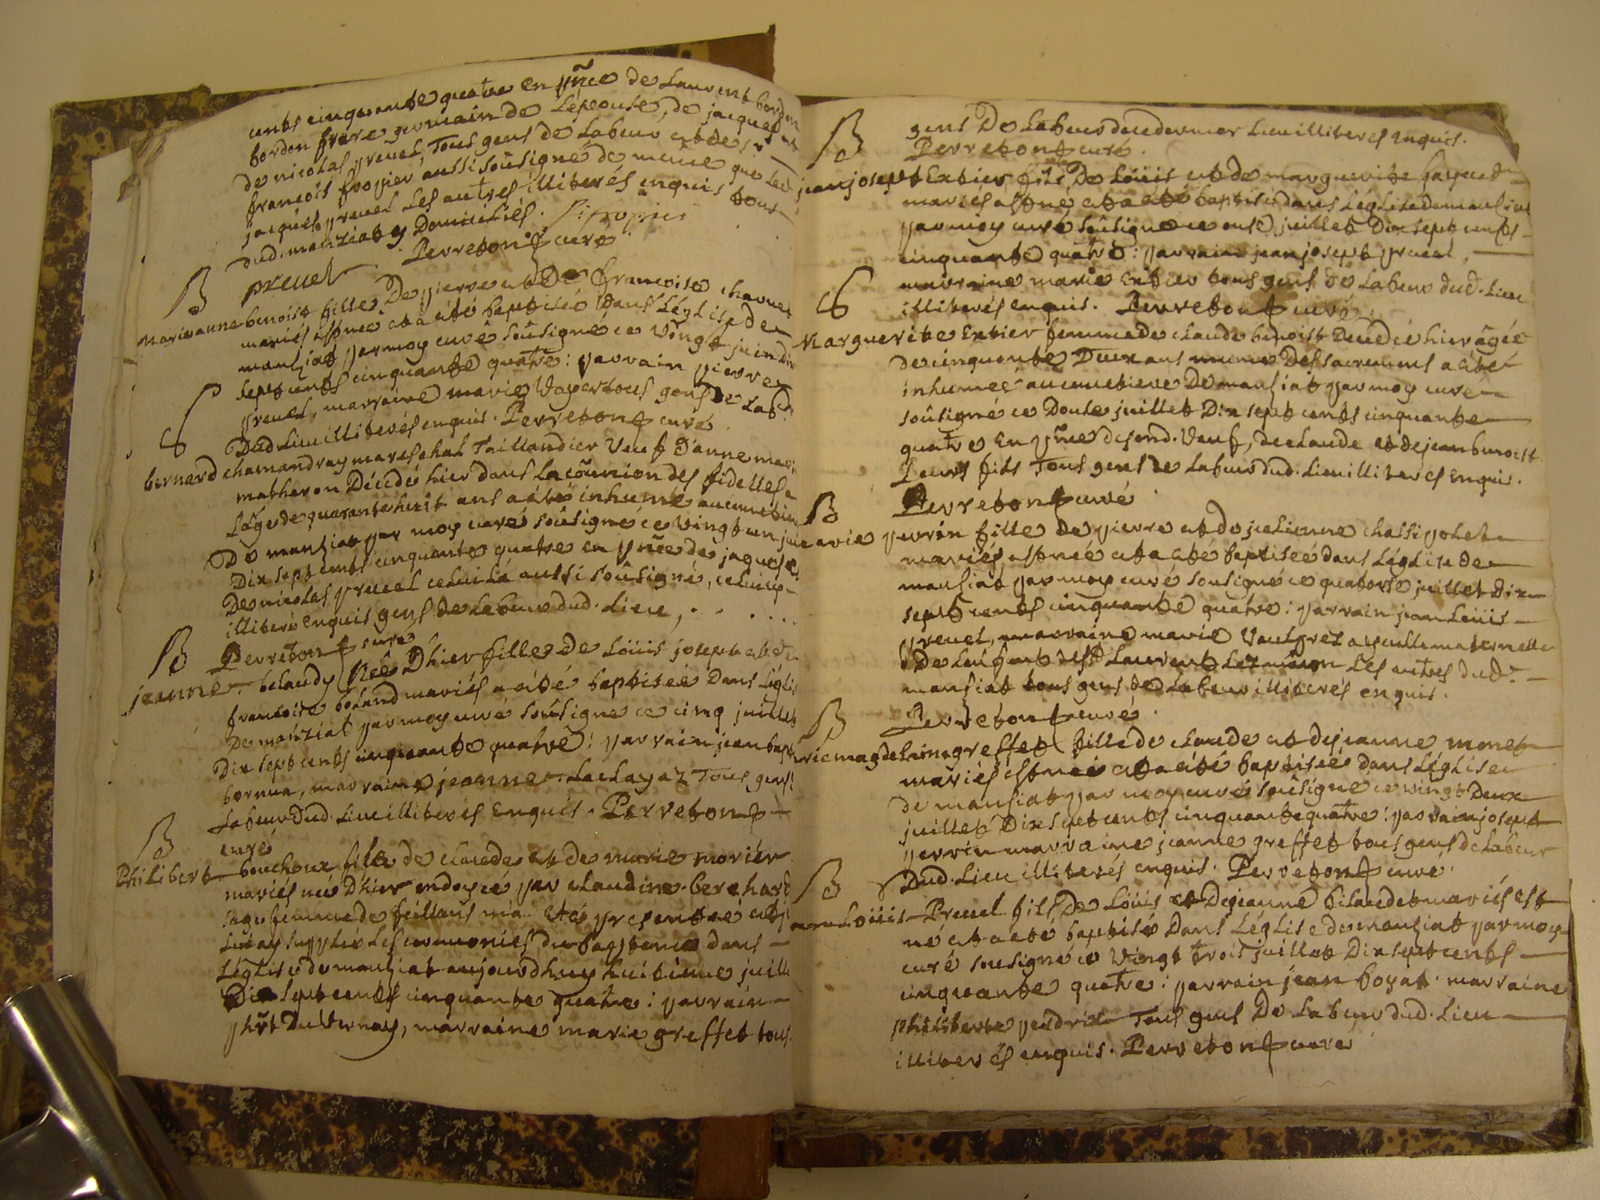 cents cinquante quatre en pñce de Laurent bordon
bordon frere germain de Lepouse, de jacques et
de nicolas preuel, Tous gens de Labeur et de
francois froppier aussi soûsigné de même que led.
jacques preuel les autres illiterés enquis tous
dud. manziat y Domiciliés.
preuel Perreton curé
B
Marieanne benoist fille De pierre et De francoise chavanel
mariés est née et a été baptisée dans L'église de
manziat par moy curé soûsigné ce vingt juin dix
sept cents cinquante quatre : parrain pierre
preuel, marraine marie tous gens de Lab.
Dud. Lieu illiterés enquis. Perreton curé
S
bernard chamandray mareschal Taillandier Veuf D'anne mari
matheron Décédé hier dans La coûnion des fidelles
Lâgé de quarante huit ans a été inhumé au cimetiere
De manziat par moy curé soûsigné ce vingt un jui
Dix sept cents cinquante quatre en pñce de jaque et
De nicolas preuel celui là aussi soûsigné, celuicy
illiteré enquis gens de Labeur dud. Lieu,
Perreton curé
B
jeanne belaudy Née D'hier fille De Loüis joseph et de
francoise boland mariés a été baptisée Dans L'églis
De manziat par moy curé soûsigné ce cinq juillet
Dix sept cents cinquante quatre : parrain jean bapt
bornua, marraine jeanne Laclayaz Tous gens
Labeur Dud. Lieu illiterés enquis. Perreton
curé
B
Philibert bouchoux fils de claude et de marie morier
mariés né D'hier ondoyé par claudine berchard
sage femme de feillans m'a été presenté et j
Luy ay supplié Les ceremonies du baptême dans
L'église de manziat aujourd'huy huitième juill
Dix sept cents cinquante quatre : parrain
phĩt Duvernay, marraine marie greffet tous
gens De Labeur dud. dernier Lieu illiterés enquis.
Perreton curé.
B
jean joseph Extier fils De Loüis et de marguerite
mariés est né et a été baptisé dans L'église de manziat
par moy curé soûsigné ce onze juillet Dix sept cents
cinquante quatre : parrain jean joseph preuel,
marraine marie Extier tous gens de Labeur dud. Lieu
illiterés enquis. Perreton curé
S
Marguerite Extier femme de claude benoist Decedée hier âgée
de cinquante Deux ans munie Des sacremens a été
inhumée au cimetiere De manziat par moy curé
soûsigné ce Douze juillet Dix sept cents cinquante
quatre En pñce desond. Veuf, de claude et de jean benoist
Leurs fils Tous gens de Labeur dud. Lieu illiterés enquis.
Perreton curé
B
marie perrin fille De pierre et de jeanne chassipolet
mariés est née et a été baptisée dans L'église de
manziat par moy curé soûsigné ce quatorze juillet dix
sept cents cinquante quatre : parrain jean Loüis
preuel, marraine marie Vaufrez ayeulle maternelle
De L'enfant Les autres dud.
manziat tous gens de Labeur illiterés enquis.
Perreton curé
B
marie magdelaine greffet fille de claude et de jeanne monet
mariés est née et a été baptisée dans L'église
de manziat par moy curé soûsigné ce vingt Deux
juillet Dix sept cents cinquante quatre : parrain joseph
perrin marraine jeanne greffet tous gens de Labeur
Dud. Lieu illiterés enquis. Perreton curé.
B
jean Loüis Preuel fils De Loüis et De jeanne bilaudet mariés est
né et a été baptisé Dans L'église de manziat par moy
curé soûsigné ce Vingt trois juillet Dix sept cents
cinquante quatre : parrain jean boyat marraine
philiberte perdrix Tous gens De Labeur dud. Lieu
illiterés enquis. Perreton curé